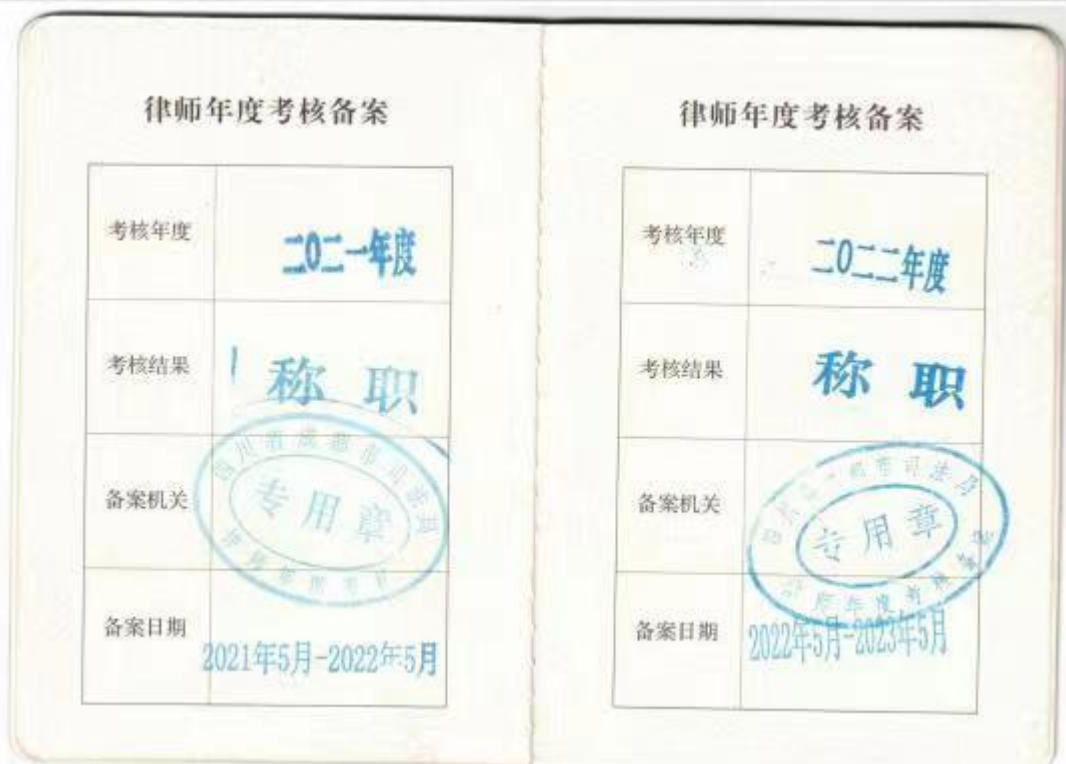 律师年度考核备案
考核年度
二0二一年度
考核结果
称职
备案机关
四川省成都市司法局
专用章
备案日期
2021年5月-2022年5月
律师年度考核备案
考核年度
二0二二年度
考核结果
称职
备案机关
都市司法局
专用章
律师年度考核
备案日期
2022年5月-2023年5月